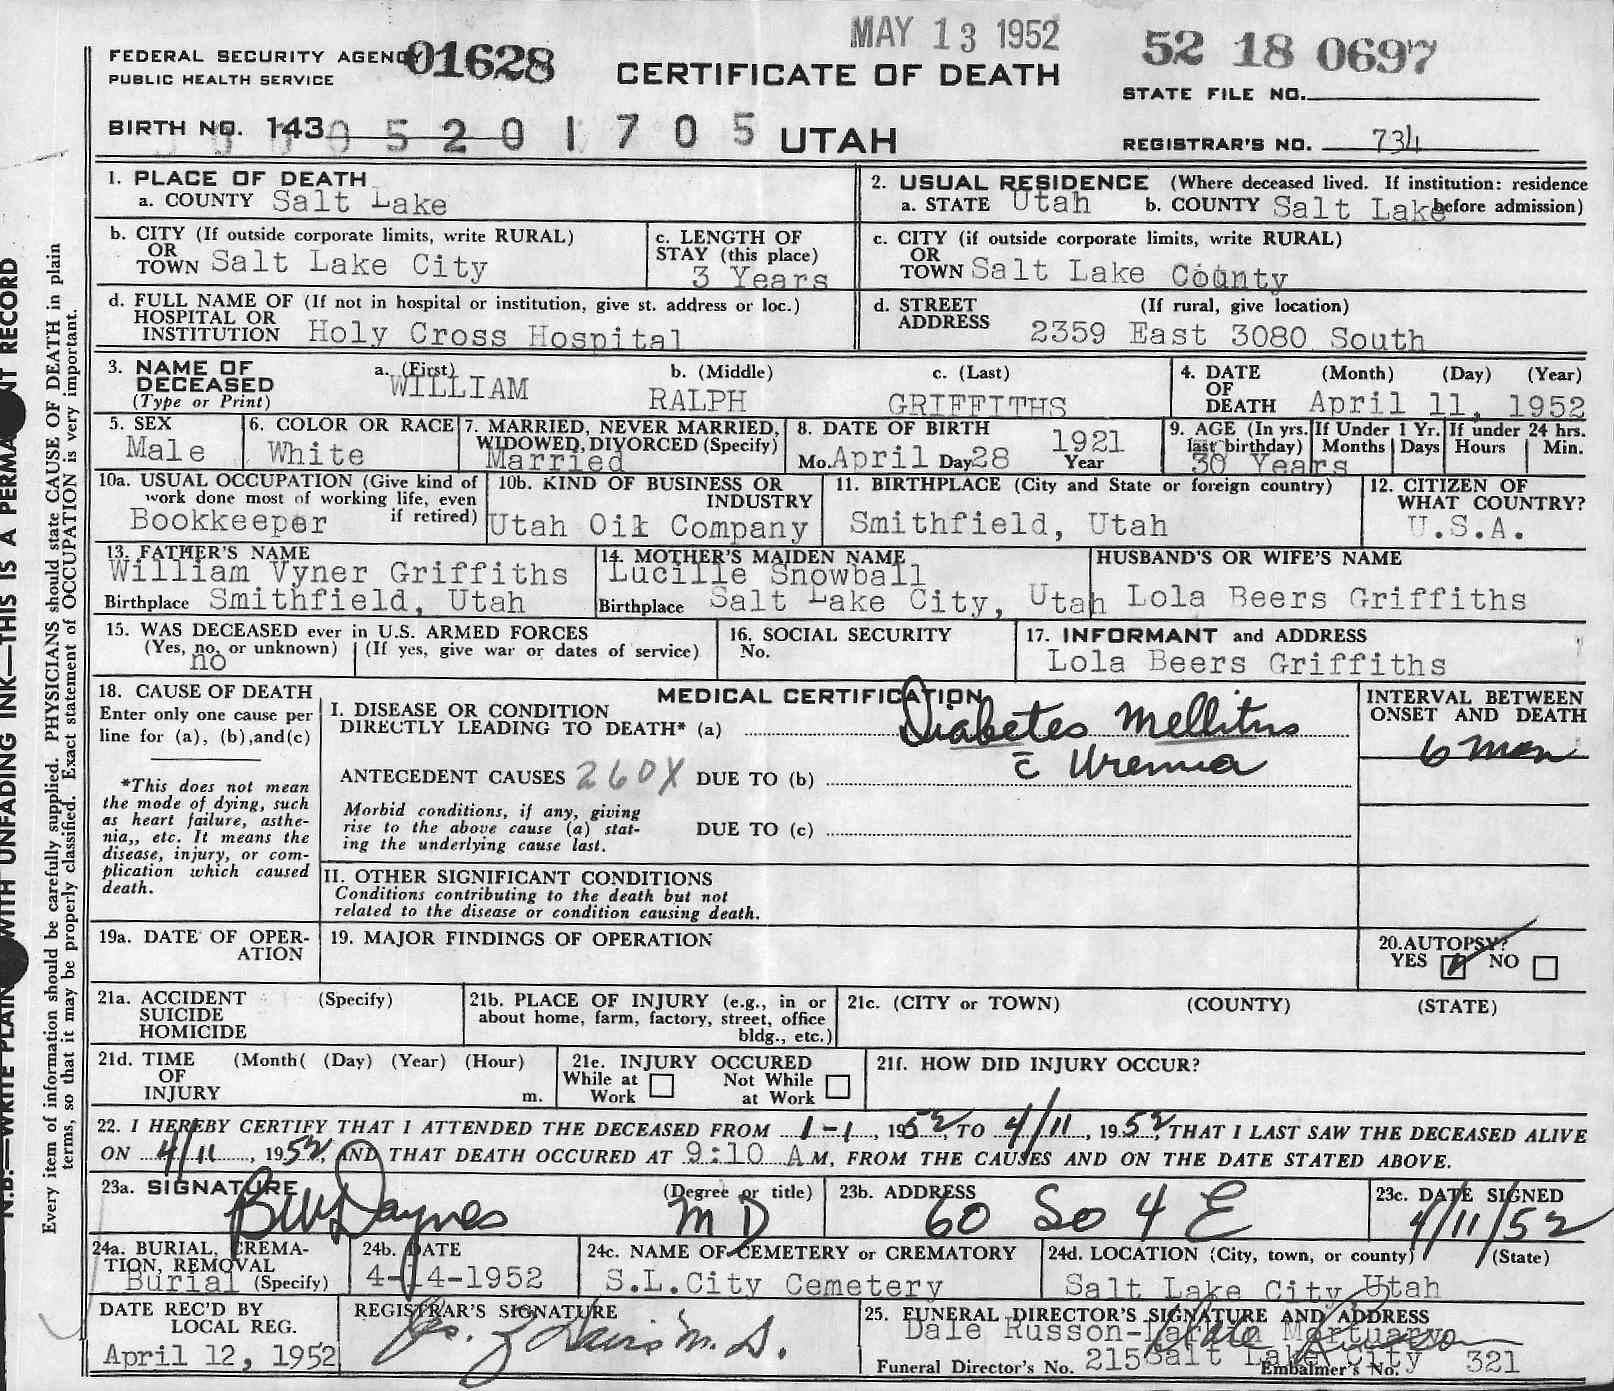 MAY 13 1952
FEDERAL SECURITY AGENCY 01628
PUBLIC HEALTH SERVICE
CERTIFICATE OF DEATH
52 18 0697
STATE FILE NO.
BIRTH NO. 143 0 5 2 0 1 7 0 5 UTAH
REGISTRAR'S NO. 734
1. PLACE OF DEATH
a. COUNTY Salt Lake
2. USUAL RESIDENCE (Where deceased lived. If institution: residence
a. STATE Utah b. COUNTY Salt Lake before admission)
b. CITY (If outside corporate limits, write RURAL)
OR
TOWN Salt Lake City
c. LENGTH OF
STAY (this place)
3 Years
c. CITY (if outside corporate limits, write RURAL)
OR
TOWN Salt Lake County
d. FULL NAME OF (If not in hospital or institution, give st. address or loc.)
HOSPITAL OR
INSTITUTION Holy Cross Hospital
d. STREET (If rural, give location)
ADDRESS 2359 East 3080 South
3. NAME OF a. (First) b. (Middle) c. (Last)
DECEASED WILLIAM RALPH GRIFFITHS
(Type or Print)
4. DATE (Month) (Day) (Year)
OF
DEATH April 11, 1952
5. SEX
Male
6. COLOR OR RACE
White
7. MARRIED, NEVER MARRIED,
WIDOWED, DIVORCED (Specify)
Married
8. DATE OF BIRTH 1921
Mo. April Day 28 Year
9. AGE (In yrs.
last birthday)
30 Years
If Under 1 Yr.
Months Days
If under 24 hrs.
Hours Min.
10a. USUAL OCCUPATION (Give kind of
work done most of working life, even
if retired)
Bookkeeper
10b. KIND OF BUSINESS OR
INDUSTRY
Utah Oil Company
11. BIRTHPLACE (City and State or foreign country)
Smithfield, Utah
12. CITIZEN OF
WHAT COUNTRY?
U.S.A.
13. FATHER'S NAME
William Vyner Griffiths
Birthplace Smithfield, Utah
14. MOTHER'S MAIDEN NAME
Lucille Snowball
Birthplace Salt Lake City, Utah
HUSBAND'S OR WIFE'S NAME
Lola Beers Griffiths
15. WAS DECEASED ever in U.S. ARMED FORCES
(Yes, no, or unknown) (If yes, give war or dates of service)
no
16. SOCIAL SECURITY
No.
17. INFORMANT and ADDRESS
Lola Beers Griffiths
18. CAUSE OF DEATH
Enter only one cause per
line for (a), (b),and(c)
*This does not mean
the mode of dying, such
as heart failure, asthe-
nia,, etc. It means the
disease, injury, or com-
plication which caused
death.
MEDICAL CERTIFICATION
I. DISEASE OR CONDITION
DIRECTLY LEADING TO DEATH* (a) Diabetes Mellitus
c̄ Uremia
ANTECEDENT CAUSES 260X DUE TO (b)
Morbid conditions, if any, giving
rise to the above cause (a) stat-
ing the underlying cause last.
DUE TO (c)
II. OTHER SIGNIFICANT CONDITIONS
Conditions contributing to the death but not
related to the disease or condition causing death.
INTERVAL BETWEEN
ONSET AND DEATH
6 mon
19a. DATE OF OPER-
ATION
19. MAJOR FINDINGS OF OPERATION
20. AUTOPSY?
YES NO
21a. ACCIDENT (Specify)
SUICIDE
HOMICIDE
21b. PLACE OF INJURY (e.g., in or
about home, farm, factory, street, office
bldg., etc.)
21c. (CITY or TOWN) (COUNTY) (STATE)
21d. TIME (Month( (Day) (Year) (Hour)
OF
INJURY m.
21e. INJURY OCCURED
While at Not While
Work at Work
21f. HOW DID INJURY OCCUR?
22. I HEREBY CERTIFY THAT I ATTENDED THE DECEASED FROM 1-1, 1952, TO 4/11, 1952, THAT I LAST SAW THE DECEASED ALIVE
ON 4/11, 1952, AND THAT DEATH OCCURED AT 9:10 A M, FROM THE CAUSES AND ON THE DATE STATED ABOVE.
23a. SIGNATURE (Degree or title)
Daynes M D
23b. ADDRESS
60 So 4 E
23c. DATE SIGNED
4/11/52
24a. BURIAL, CREMA-
TION, REMOVAL
Burial (Specify)
24b. DATE
4-14-1952
24c. NAME OF CEMETERY or CREMATORY
S.L.City Cemetery
24d. LOCATION (City, town, or county) (State)
Salt Lake City Utah
DATE REC'D BY
LOCAL REG.
April 12, 1952
REGISTRAR'S SIGNATURE
M.D.
25. FUNERAL DIRECTOR'S SIGNATURE AND ADDRESS
Dale Russon- Mortuary
Salt Lake City
Funeral Director's No. 215 Embalmer's No. 321
N.B.—WRITE PLAIN WITH UNFADING INK—THIS IS A PERMA NT RECORD
Every item of information should be carefully supplied. PHYSICIANS should state CAUSE OF DEATH in plain
terms, so that it may be properly classified. Exact statement of OCCUPATION is very important.